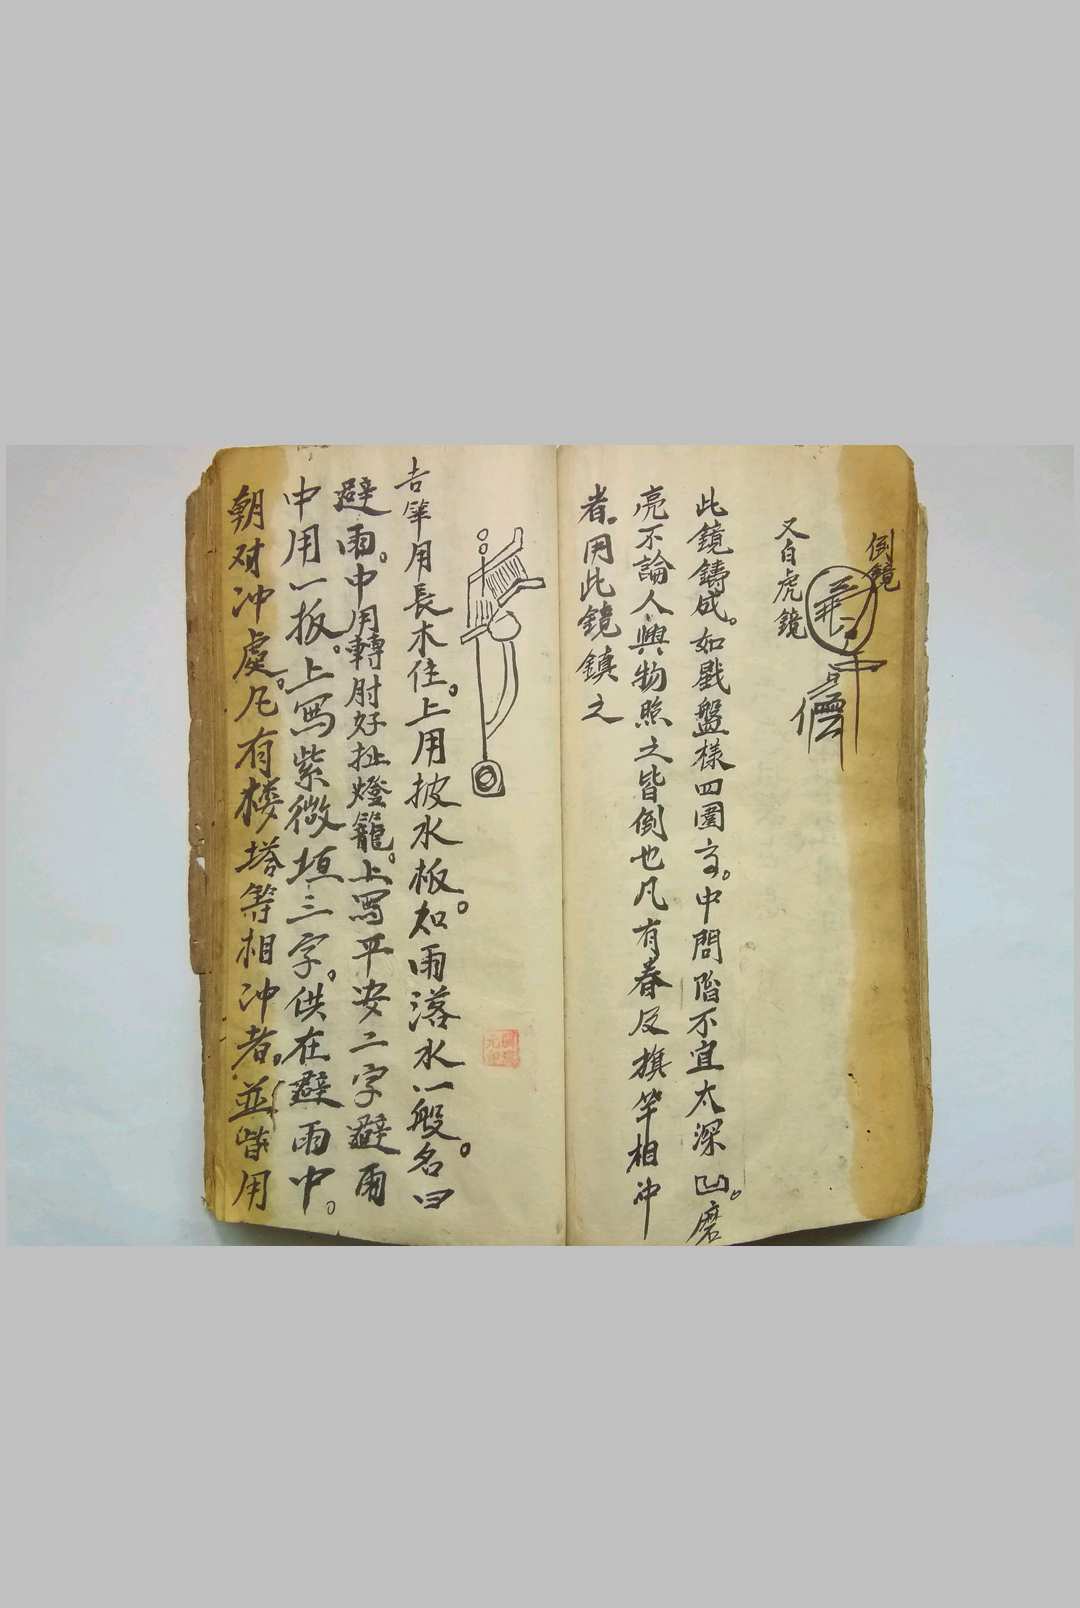 倒鏡
又白虎鏡
此鏡鑄成。如戥盤樣四圍高。中間階不宜太深凹。磨
亮不論人與物照之皆倒也凡有春反旗竿相冲
者。用此鏡鎮之
吉竿用長木住。上用披水板如雨落水一般。名曰
避雨。中用轉肘好扯燈籠。上寫平安二字避雨
中用一扳。上寫紫微垣三字。供在避雨中。
朝对冲處。凡有楼塔等相冲者。並皆用